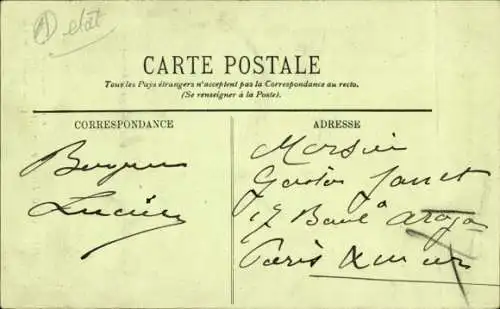 état
CARTE POSTALE
Tous les Pays étrangers n'acceptent pas la Correspondance au recto.
(Se renseigner à la Poste).
CORRESPONDANCE
ADRESSE
Lucien
Monsieur
Gaston Janet
17 Boul d Arago
Paris